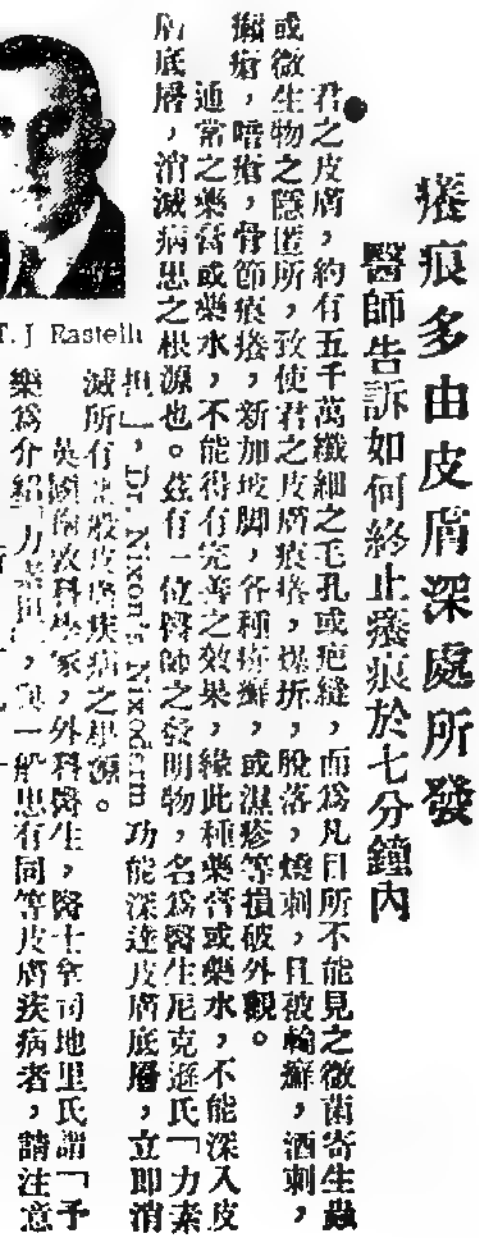 癢痕多由皮膚深處所發
醫師告訴如何終止癢痕於七分鐘內
君之皮膚，約有五千萬纖細之毛孔或疤縫，而為凡目所不能見之微菌寄生蟲
或微生物之隱匿所，致使君之皮膚痕癢，爆拆，脫落，燒刺，且被輪癬，酒刺，
癩瘡，暗瘡，骨節痕癢，新加坡脚，各種疥癬，或濕疹等損破外觀。
通常之藥膏或藥水，不能得有完善之效果，緣此種藥膏或藥水，不能深入皮
膚底層，消滅病患之根源也。茲有一位醫師之發明物，名為醫生尼克遜氏「力素
担」，Dr. Nixon's Nixoderm 功能深達皮膚底層，立即消
滅所有一般皮膚疾病之根源。
英國科學家，外科醫生，醫士司地里氏謂「予
樂為介紹「力素担」，與一般患有同等皮膚疾病者，請注意
T. J Rastelli